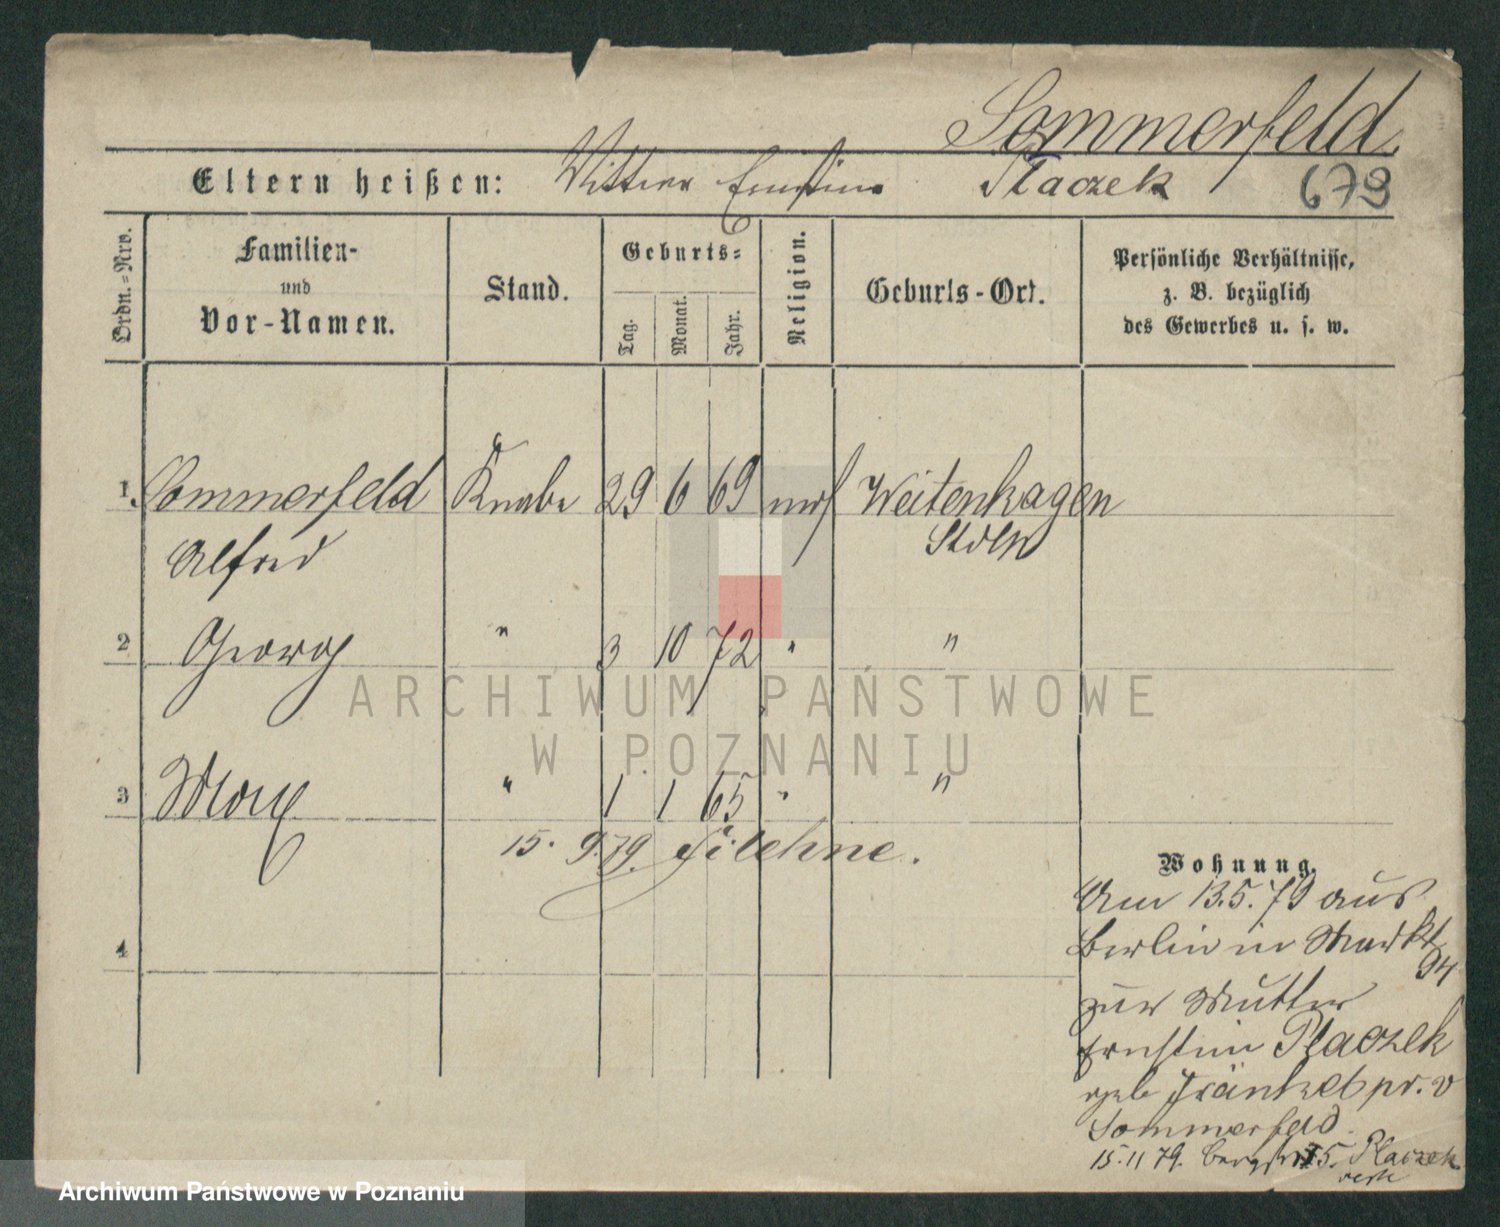 Sommerfeld
Eltern heißen: Mutter Ernstine Placzek 679
Ordn.=Nro.
Familien-
und
Vor-Namen.
Stand.
Geburts=
Tag.
Monat.
Jahr.
Religion.
Geburts-Ort.
Persönliche Verhältnisse,
z. B. bezüglich
des Gewerbes u. s. w.
1. Sommerfeld Knabe 29 6 69 mos Weitenhagen
Alfred
2 Georg " 3 10 72 " "
ARCHIWUM PAŃSTWOWE
W POZNANIU
3 Max " 1 1 65 " "
15. 9. 79. Filehne.
Wohnung.
Am 13.5.79 aus
Berlin in Markt
94
zur Mutter
Ernstine Placzek
geb Fränkel pr. v
Sommerfeld
15.11 79. Bergstr 15. Placzek
4
Archiwum Państwowe w Poznaniu